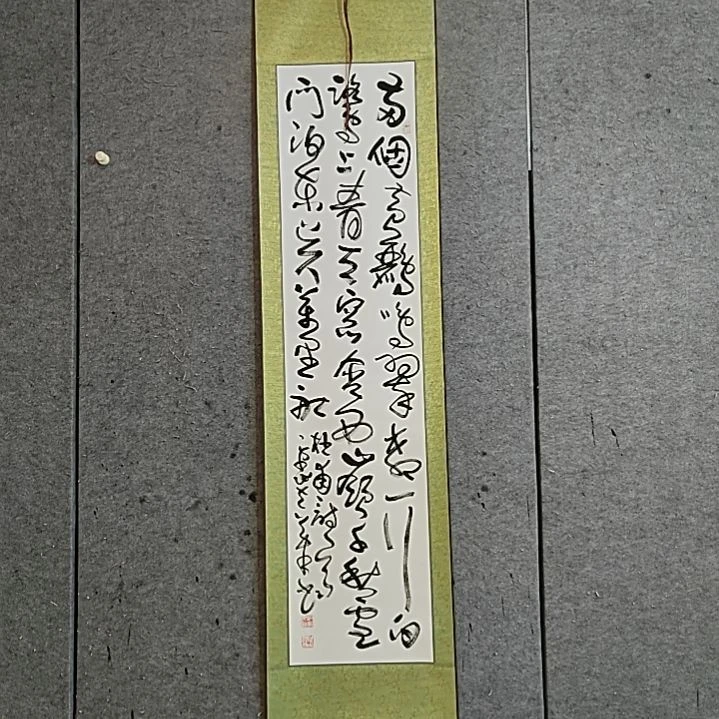 两個黄鸝鳴翠柳一行白
鷺上青天窗含西嶺千秋雪
门泊東吴萬里船
杜甫詩